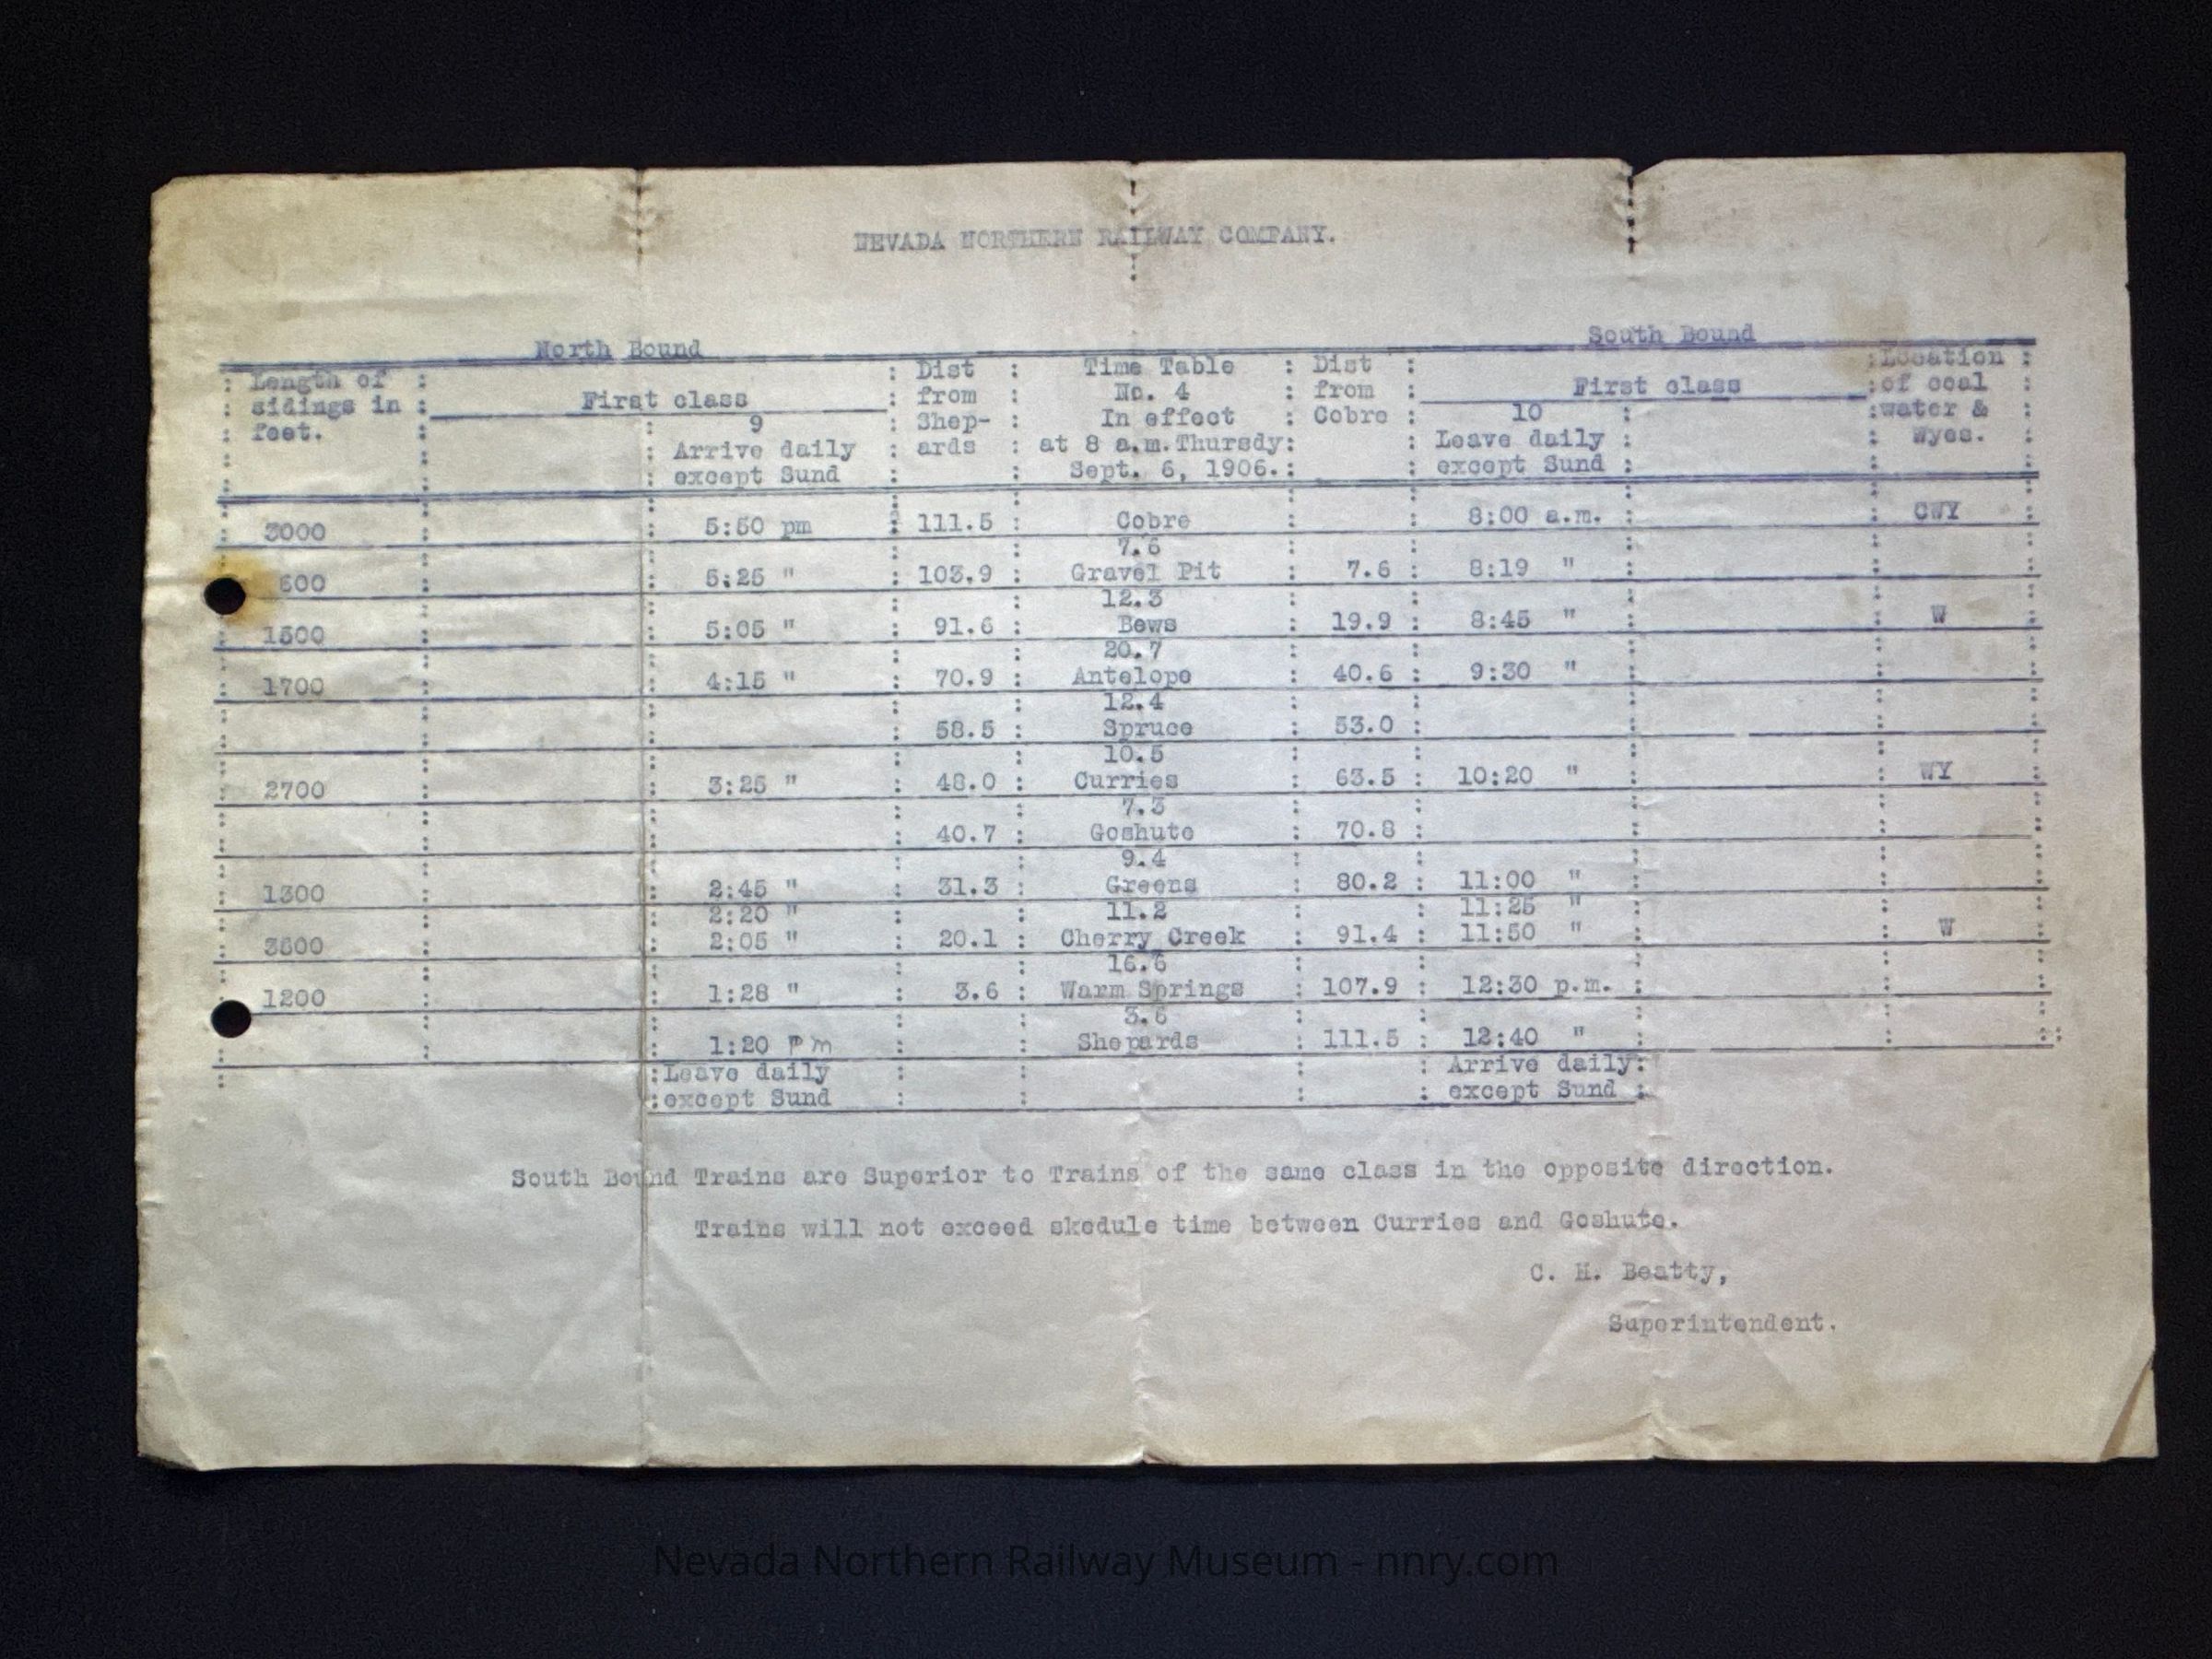 NEVADA NORTHERN RAILWAY COMPANY.
North Bound South Bound
Length of sidings in feet. First class Dist from Shep-ards Time Table No. 4 In effect at 8 a.m.Thursdy: Sept. 6, 1906. Dist from Cobre First class Location of coal water & Wyes.
9 Arrive daily except Sund 10 Leave daily except Sund
3000 5:50 pm 111.5 Cobre 8:00 a.m. CWY
7.6
600 5:25 " 103.9 Gravel Pit 7.6 8:19 "
12.3
1500 5:05 " 91.6 Bews 19.9 8:45 " W
20.7
1700 4:15 " 70.9 Antelope 40.6 9:30 "
12.4
58.5 Spruce 53.0
10.5
2700 3:25 " 48.0 Curries 63.5 10:20 " WY
7.3
40.7 Goshute 70.8
9.4
1300 2:45 " 31.3 Greens 80.2 11:00 "
2:20 " 11.2 11:25 "
3600 2:05 " 20.1 Cherry Creek 91.4 11:50 " W
16.6
1200 1:28 " 3.6 Warm Springs 107.9 12:30 p.m.
3.6
1:20 Pm Shepards 111.5 12:40 "
Leave daily Arrive daily:
except Sund except Sund
South Bound Trains are Superior to Trains of the same class in the opposite direction.
Trains will not exceed skedule time between Curries and Goshute.
C. H. Beatty,
Superintendent.
Nevada Northern Railway Museum - nnry.com